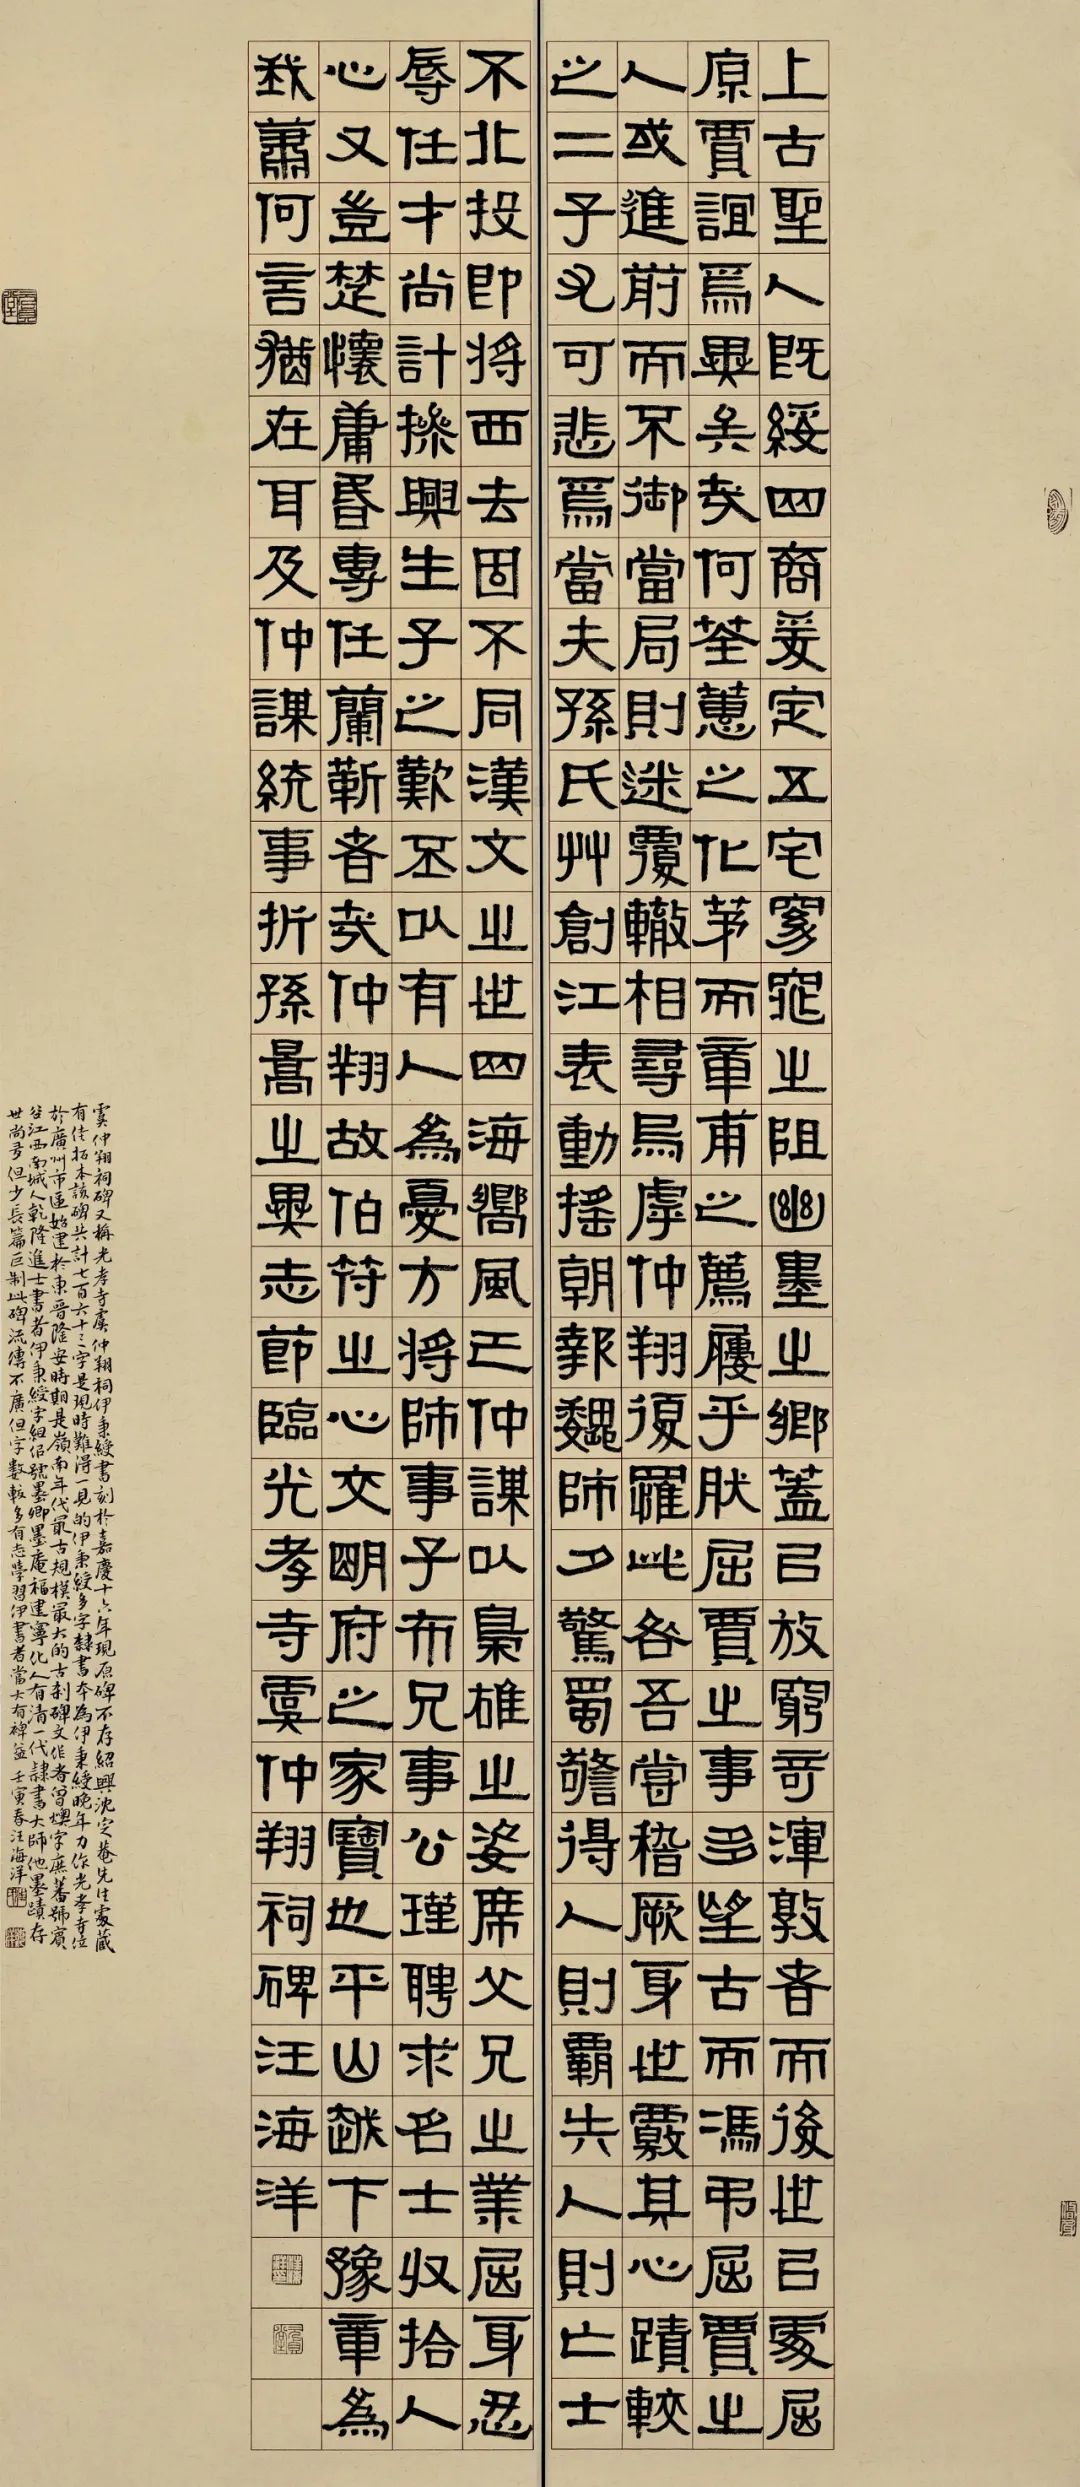 上古聖人既綏四裔爰定五宅窮窕之阻幽墨之鄉蓋㠯放窮奇渾敦者而後世㠯處屈
原賈誼焉異矣哉何荃蕙之化茅而章甫之薦屨乎肰屈賈之事多望古而馮弔屈賈之
人或進前而不御當局則迷覆轍相尋烏虖仲翔復罹此咎吾嘗稽厥身世覈其心蹟較
之二子尤可悲焉當夫孫氏艸創江表動搖朝報魏師夕驚蜀警得人則霸失人則亡士
不北投即將西去固不同漢文之世四海嚮風已仲謀以梟雄之姿席父兄之業屈身忍
辱任才尚計操興生子之歎丕以有人為憂方將師事子布兄事公瑾聘求名士收拾人
心又豈楚懷庸昏專任蘭靳者哉仲翔故伯符之心交明府之家寶也平山越下豫章為
我蕭何言猶在耳及仲謀統事折孫暠之異志節臨光孝寺虞仲翔祠碑汪海洋
虞仲翔祠碑又稱光孝寺虞仲翔祠伊秉綬書刻於嘉慶十六年現原碑不存紹興沈定菴先生處藏
有佳拓本該碑共計七百六十三字是現時難得一見的伊秉綬多字隸書本為伊秉綬晚年力作光孝寺位
於廣州市區始建於東晉隆安時期是嶺南年代最古規模最大的古剎碑文作者曾燠字庶蕃號賓
谷江西南城人乾隆進士書者伊秉綬字組佀號墨卿墨庵福建寧化人有清一代隸書大師他墨蹟存
世尚多但少長篇巨制此碑流傳不廣但字數較多有志學習伊書者當大有裨益 壬寅春汪海洋